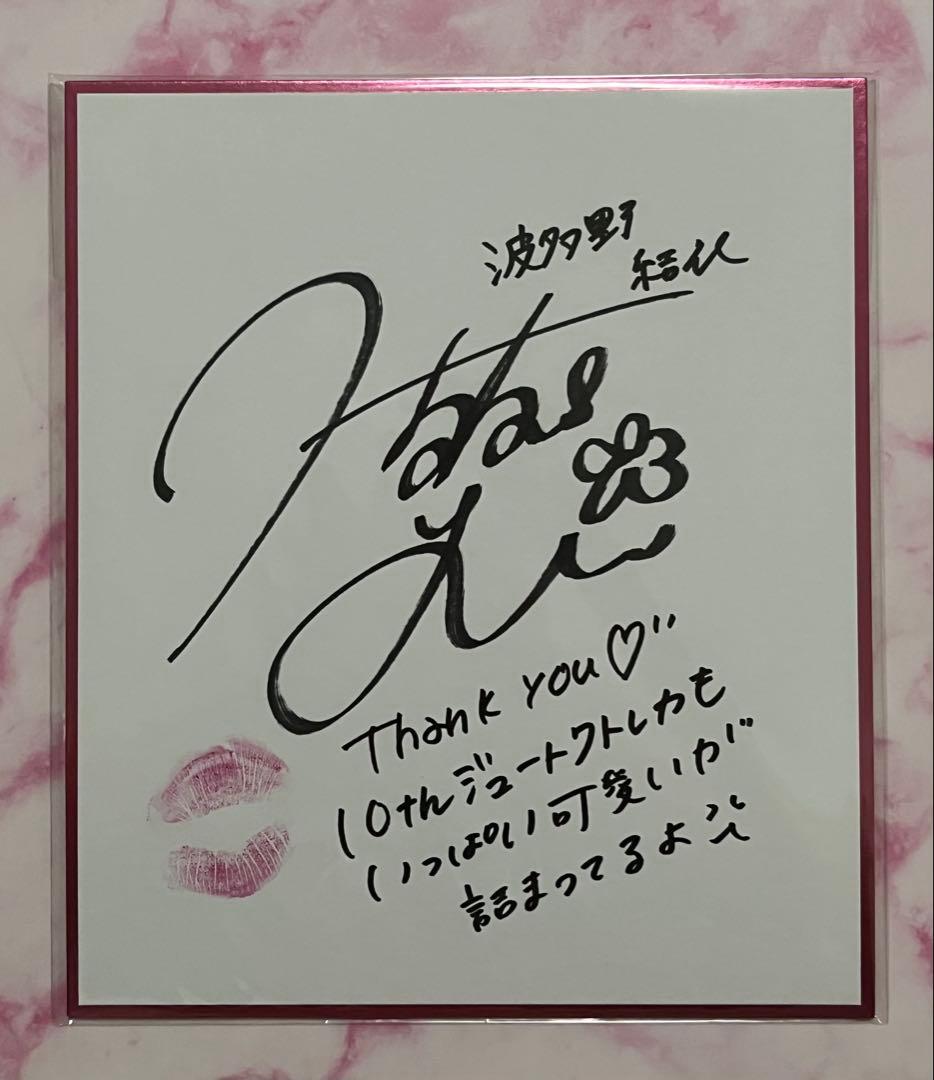 波多野
結衣
Hatano
Yui
Thank you♡
10thジュートクトレカも
いっぱい可愛いが
詰まってるよ